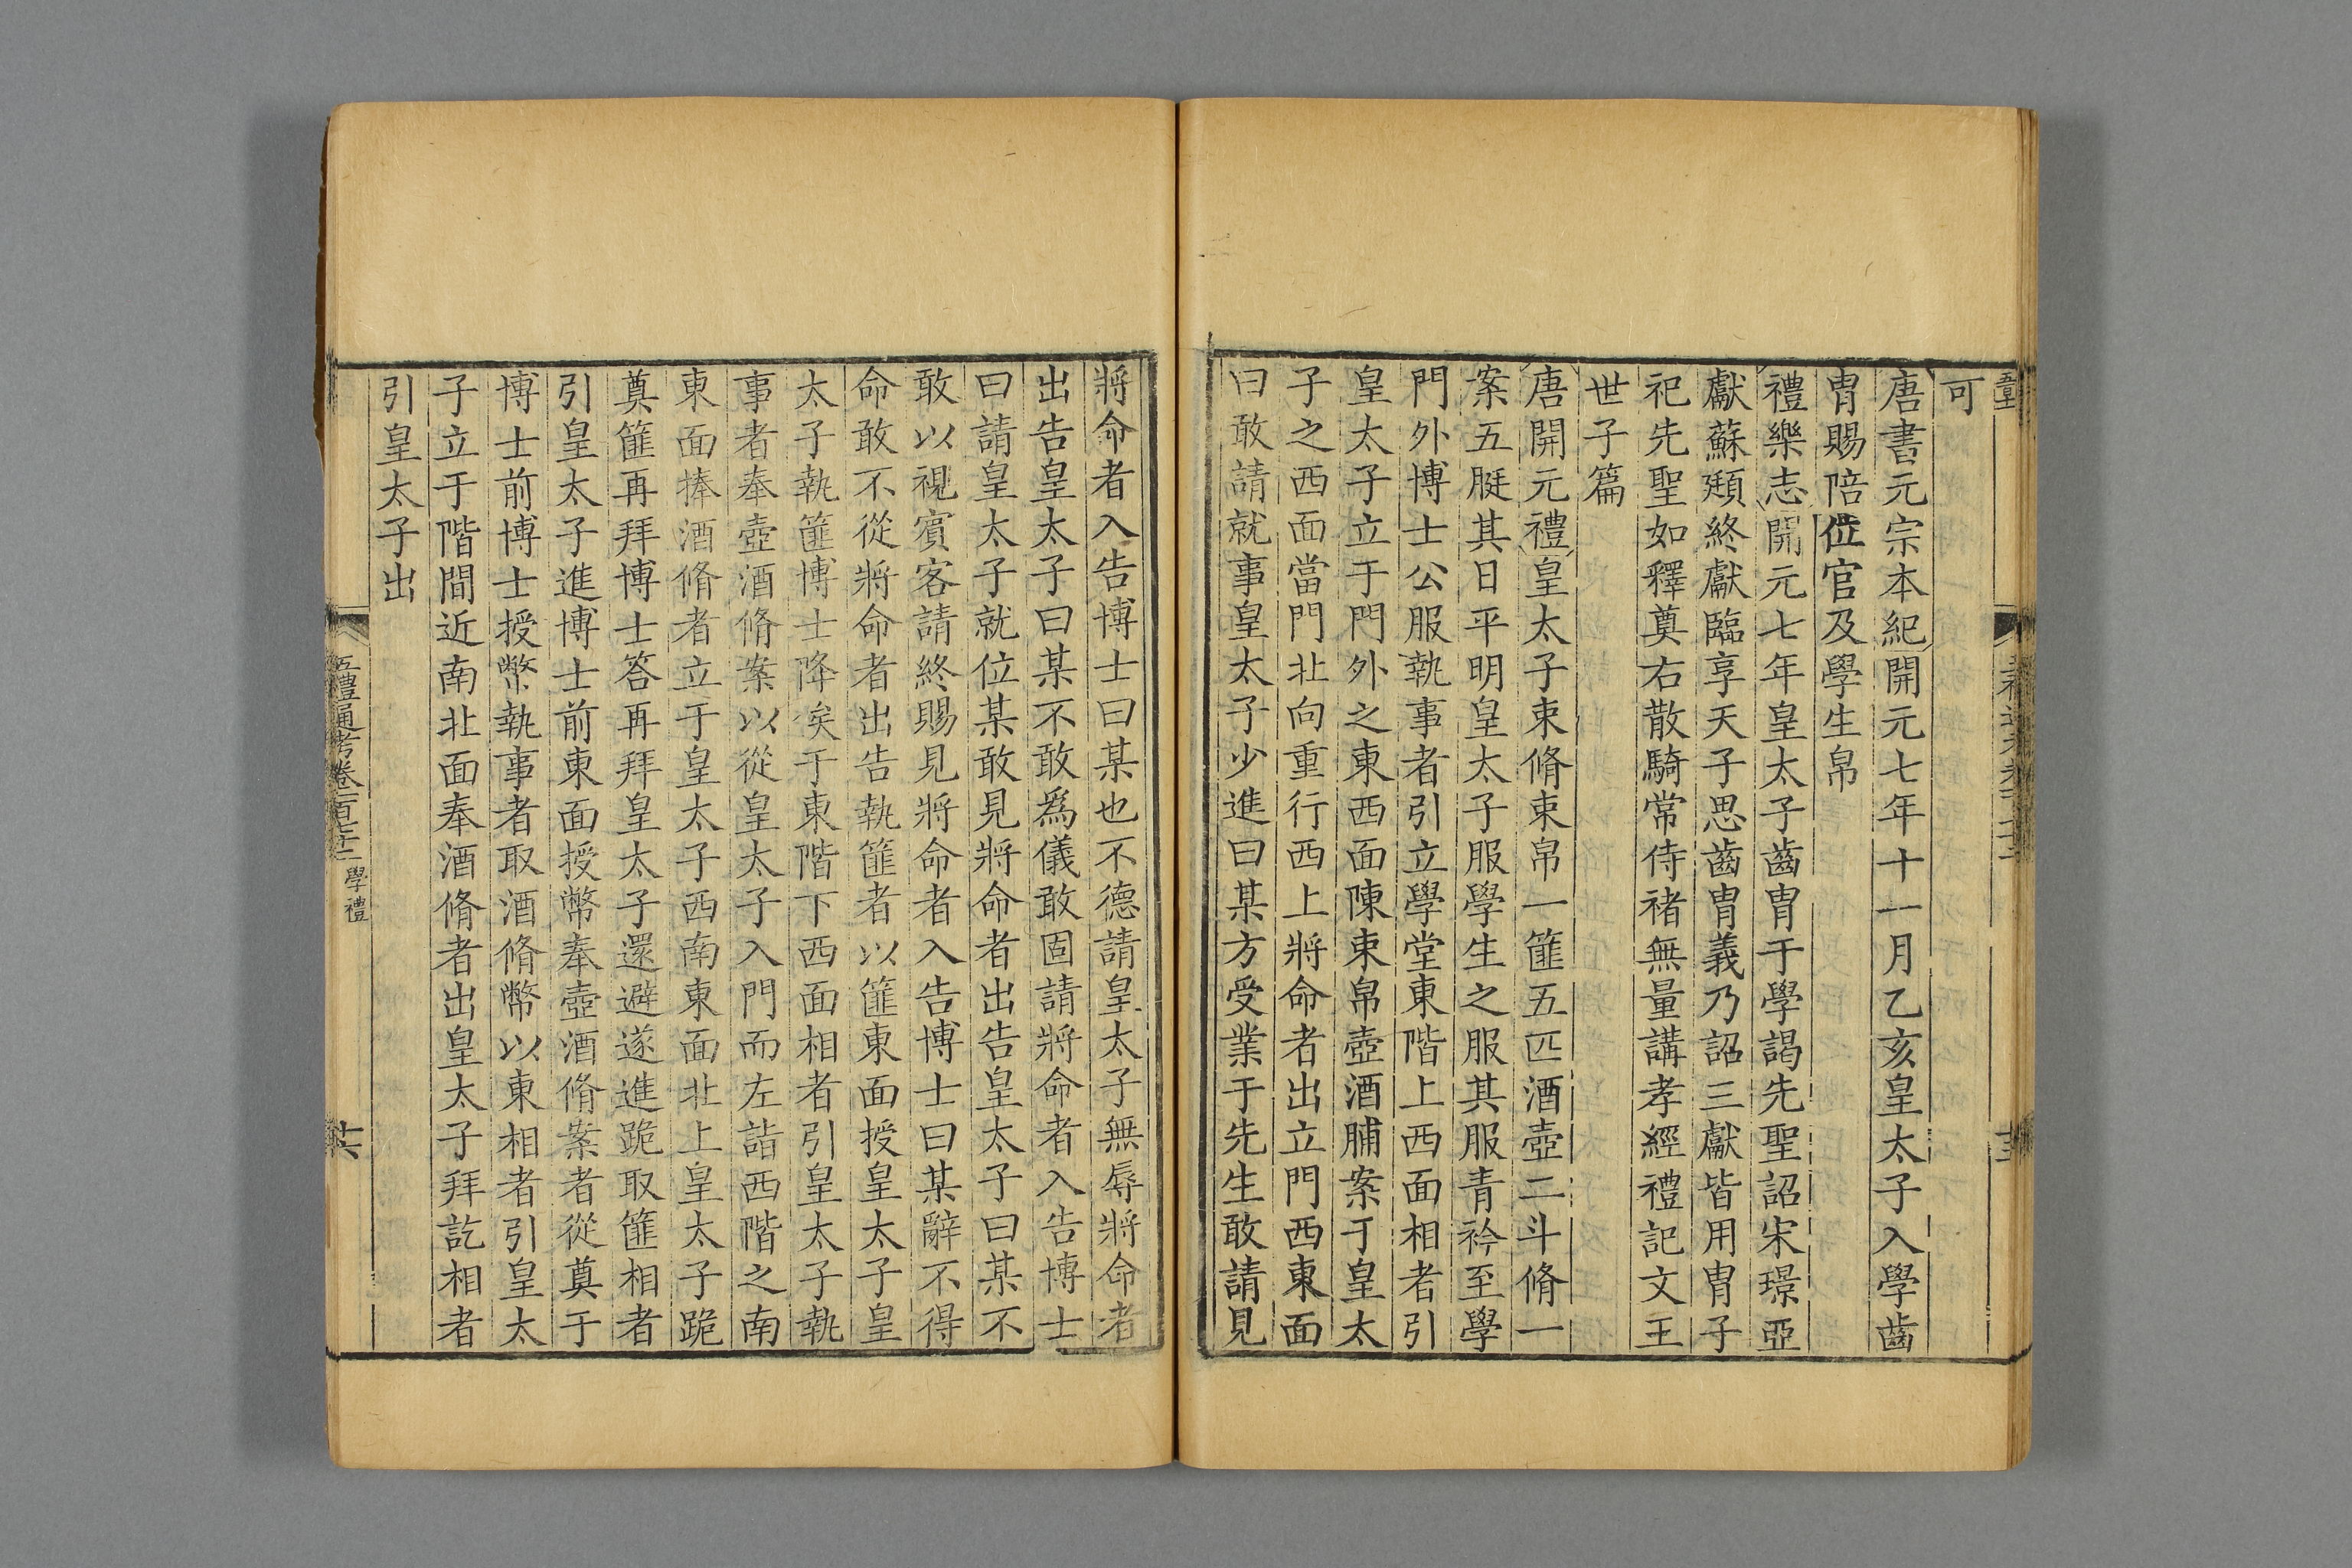 可
唐書元宗本紀開元七年十一月乙亥皇太子入學齒
胄賜陪位官及學生帛
禮樂志開元七年皇太子齒胄于學謁先聖詔宋璟亞
獻蘇頲終獻臨享天子思齒胄義乃詔三獻皆用胄子
祀先聖如釋奠右散騎常侍褚無量講孝經禮記文王
世子篇
唐開元禮皇太子束脩束帛一篚五匹酒壺二斗脩一
案五脡其日平明皇太子服學生之服其服青衿至學
門外博士公服執事者引立學堂東階上西面相者引
皇太子立于門外之東西面陳束帛壺酒脯案于皇太
子之西西面當門北向重行西上將命者出立門西東面
曰敢請就事皇太子少進曰某方受業于先生敢請見
將命者入告博士曰某也不德請皇太子無辱將命者
出告皇太子曰某不敢爲儀敢固請將命者入告博士
曰請皇太子就位某敢見將命者出告皇太子曰某不
敢以視賓客請終賜見將命者入告博士曰某辭不得
命敢不從將命者出告執篚者以篚東面授皇太子皇
太子執篚博士降俟于東階下西面相者引皇太子執
事者奉壺酒脩案以從皇太子入門而左詣西階之南
東面捧酒脩者立于皇太子西南東面北上皇太子跪
奠篚再拜博士答再拜皇太子還避遂進跪取篚相者
引皇太子進博士前東面授幣奉壺酒脩案者從奠于
博士前博士授幣執事者取酒脩幣以東相者引皇太
子立于階間近南北面奉酒脩者出皇太子拜訖相者
引皇太子出
五禮通考卷一百七十二 學禮